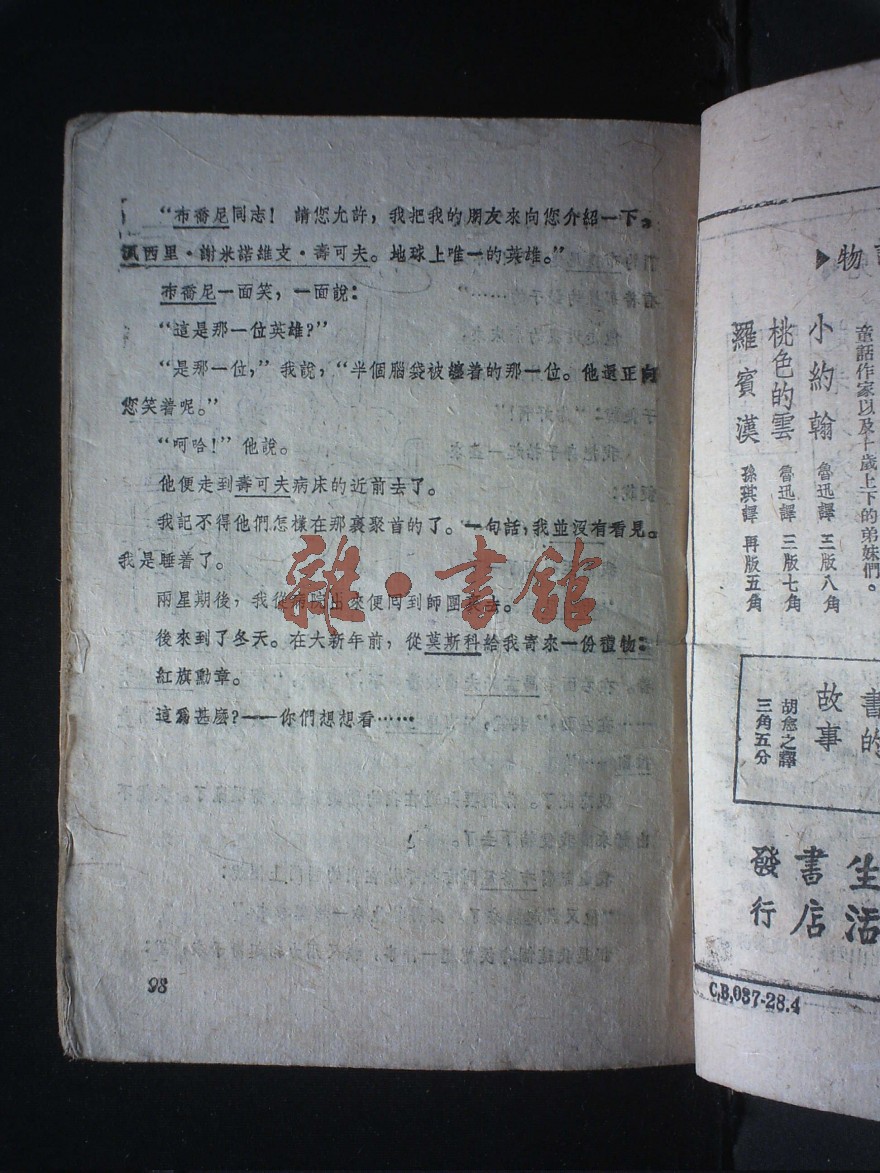 “布喬尼同志！請您允許，我把我的朋友來向您介紹一下。
西里·謝米諾維文·壽可夫。地球上唯一的英雄。”
布喬尼一面笑，一面說：
“這是那一位英雄？”
“是那一位，”我說，“半個腦袋被纏着的那一位。他還正向
您笑着呢。”
“呵哈！”他說。
他便走到壽可夫病床的近前去了。
我記不得他們怎樣在那裏聚首的了。一句話，我並沒有看見。
我是睡着了。
兩星期後，我從病院出來便回到師團去。
後來到了冬天。在大新年前，從莫斯科給我寄來一份禮物：
紅旗勳章。
這爲甚麼？——你們想想看……
98
雜·書館
物
童話作家以及十歲上下的弟妹們。
小約翰 魯迅譯 三版八角
桃色的雲 魯迅譯 三版七角
羅賓漢 孫琪譯 再版五角
書的
故事 胡愈之譯 三角五分
生活
書店
發行
C,B,087-28.4